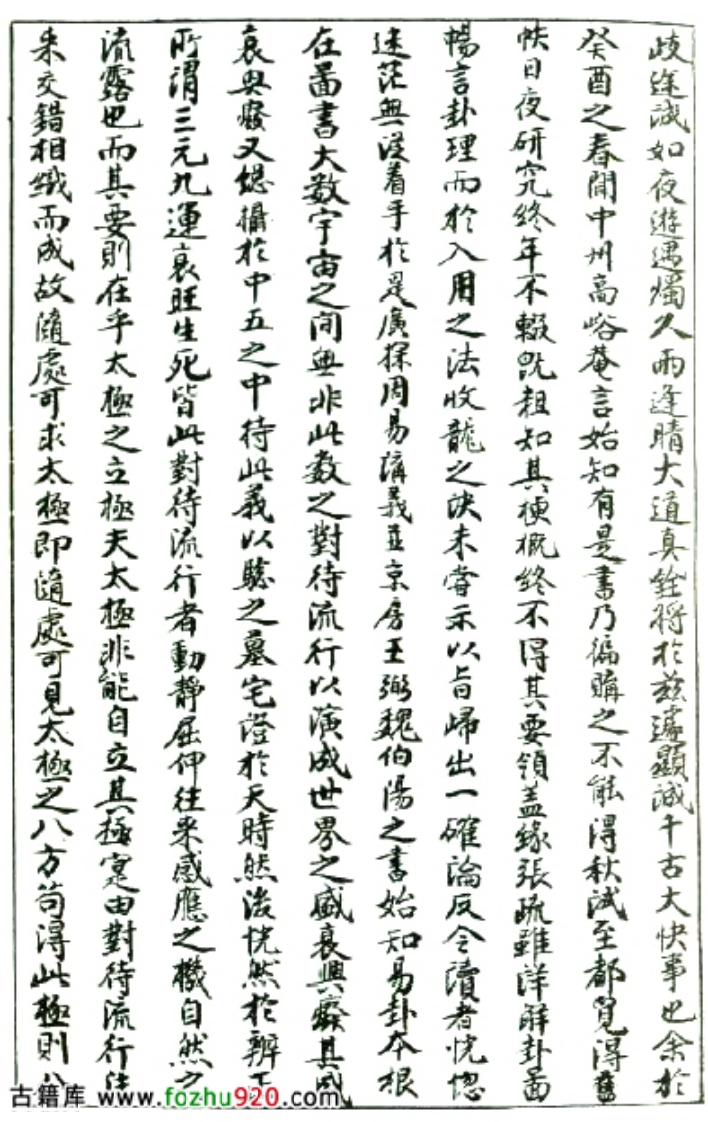 歧途誠如夜遊遇燭久雨逢晴大道真詮將於茲遽顯誠千古大快事也余於
癸酉之春聞中州高峪菴言始知有是書乃徧購之不能得秋試至都覓得舊
帙日夜研究終年不輟旣粗知其梗概終不得其要領盖緣張疏雖洋解卦圖
暢言卦理而於入用之法收龍之訣未嘗示以旨歸出一確論反令讀者恍惚
迷茫無從着手於是廣探周易講義並京房王弼魏伯陽之書始知易卦本根
在圖書大数宇宙之间無非此数之對待流行以演成世界之盛衰興癈其盛
衰興癈又總攝於中五之中待此義以驗之墓宅澄於天時然後恍然於辨正
所謂三元九運衰旺生死皆此對待流行者動靜屈伸往来感應之機自然之
流露也而其要則在乎太極之立極夫太極非能自立其極寔由對待流行往
来交錯相織而成故隨處可求太極即隨處可見太極之八方苟得此極則八
古籍库 www.fozhu920.com